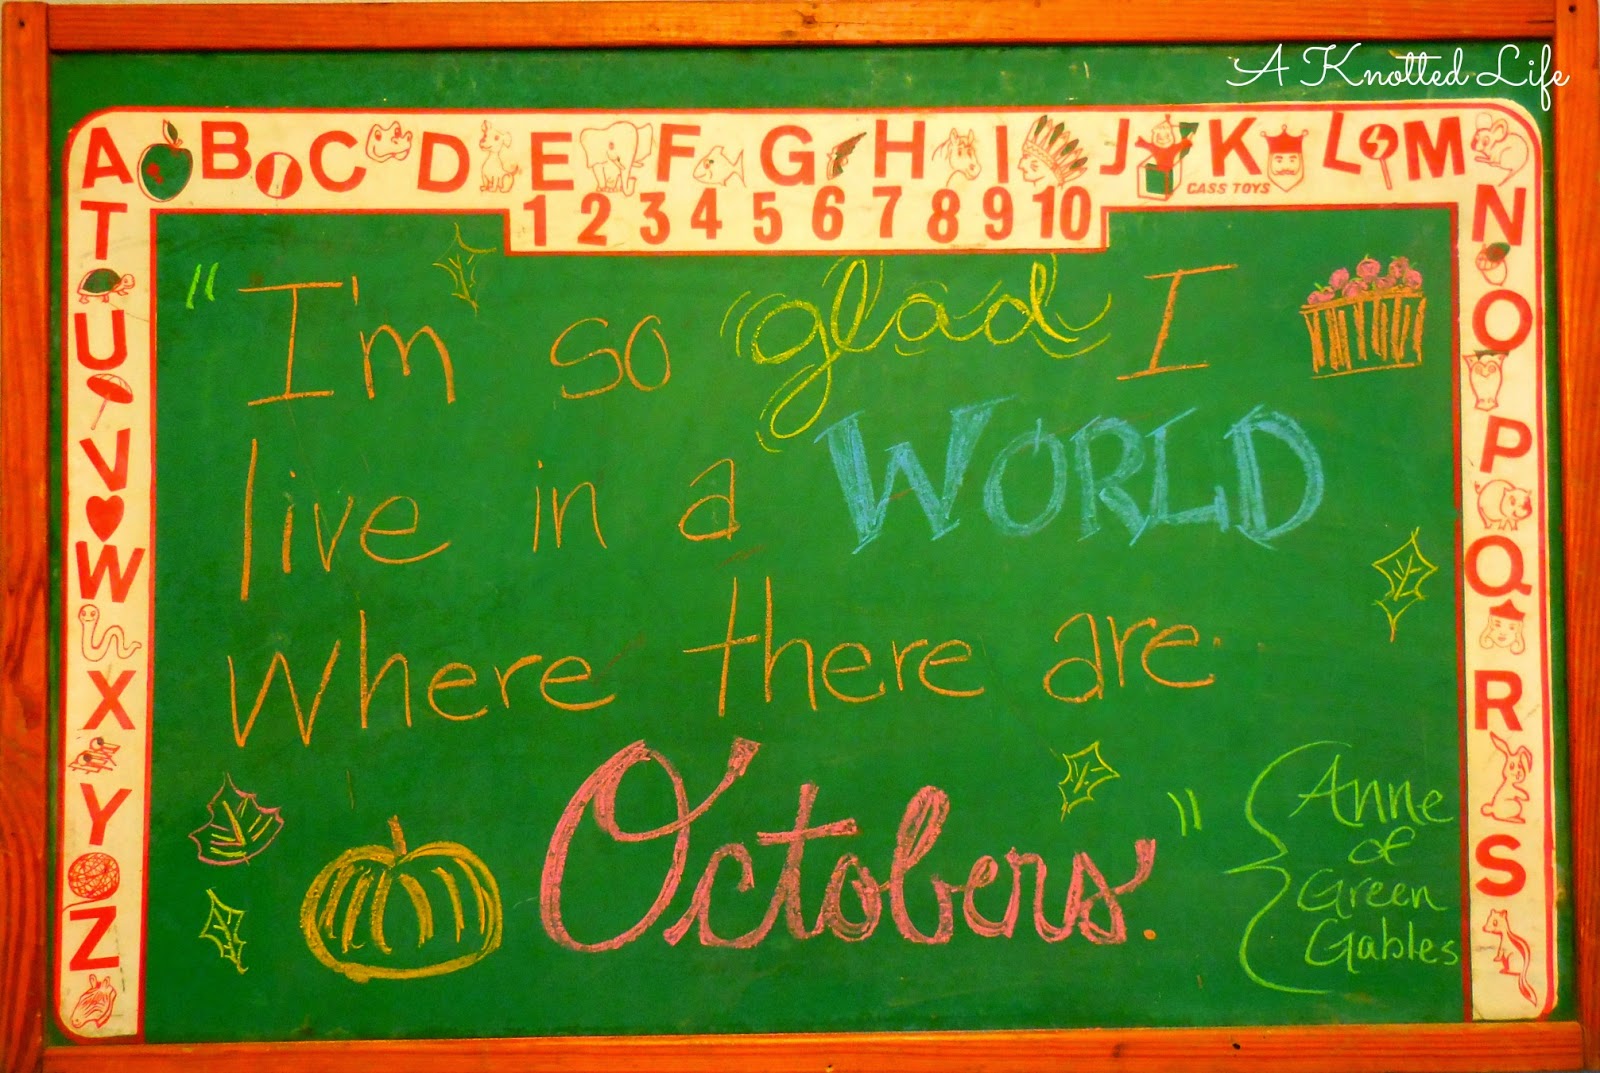 A Knotted Life
A B C D E F G H I J K L M
CASS TOYS
1 2 3 4 5 6 7 8 9 10
N
O
P
Q
R
S
T
U
V
W
X
Y
Z
"I'm so glad I
live in a WORLD
where there are
Octobers."
Anne
of
Green
Gables